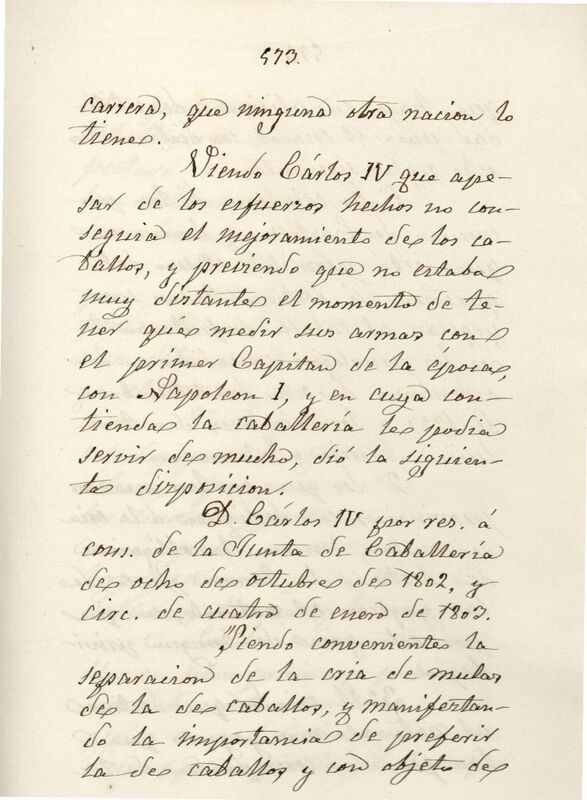 573.
carrera, que ninguna otra nacion lo
tiene.
Viendo Cárlos IV que ape-
sar de los esfuerzos hechos no con-
seguia el mejoramiento de los ca-
ballos, y previendo que no estaba
muy distante el momento de te-
ner que medir sus armas con
el primer Capitan de la época,
con Napoleon I, y en cuya con-
tienda la caballería le podia
servir de mucho, dió la siguien-
te disposicion.
D. Cárlos IV por res. á
cons. de la Junta de Caballería
de ocho de octubre de 1802, y
circ. de cuatro de enero de 1803.
"Siendo conveniente la
separacion de la cria de mulas
de la de caballos, y manifestan-
do la importancia de preferir
la de caballos y con objeto de